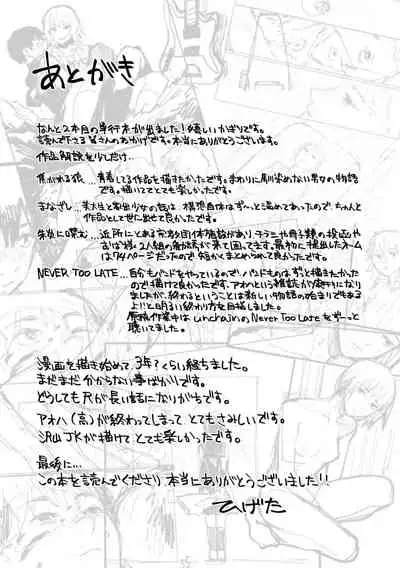 あとがき
なんと2本目の単行本が出ました！嬉しいかぎりです。
読んで下さる皆さんのおかげです。本当にありがとうございます。
作品解説を少しだけ…
焦がれる娘…青春してる作品を描きたかったです。まわりに馴染めない男女の物語
です。描いててとても楽しかったです。
まなざし…美大生と家出少女の話は、構想自体はずーっと温めてあったので、ちゃんと
作品として世に出せて良かったです。
に噛む…近所にとある宗教団体施設があり、チラシや冊子類の投函や
おば様2人組の勧誘が来て困ってます。最初に提出したネーム
は74ページだったので、短くまとめられて良かったです。
NEVER TOO LATE…自らもバンドをやっているので、バンドものはずっと描きたかった
ので描けて良かったです。アオハという雑誌が廃刊になり
ましたが、終わるということは新しい物語の始まりでもある
よ！と明るい終わり方を目指しました。
原稿作業中はunchainのNever Too Lateをずーっと
聴いてました。
漫画を描き始めて3年？くらい経ちました。
まだまだ分からない事ばかりです。
どうしても尺が長い話になりがちです。
アオハ(高)が終わってしまってとてもさみしいです。
沢山JKが描けてとても楽しかったです。
最後に…
この本を読んでくださり本当にありがとうございました!!
ひげた